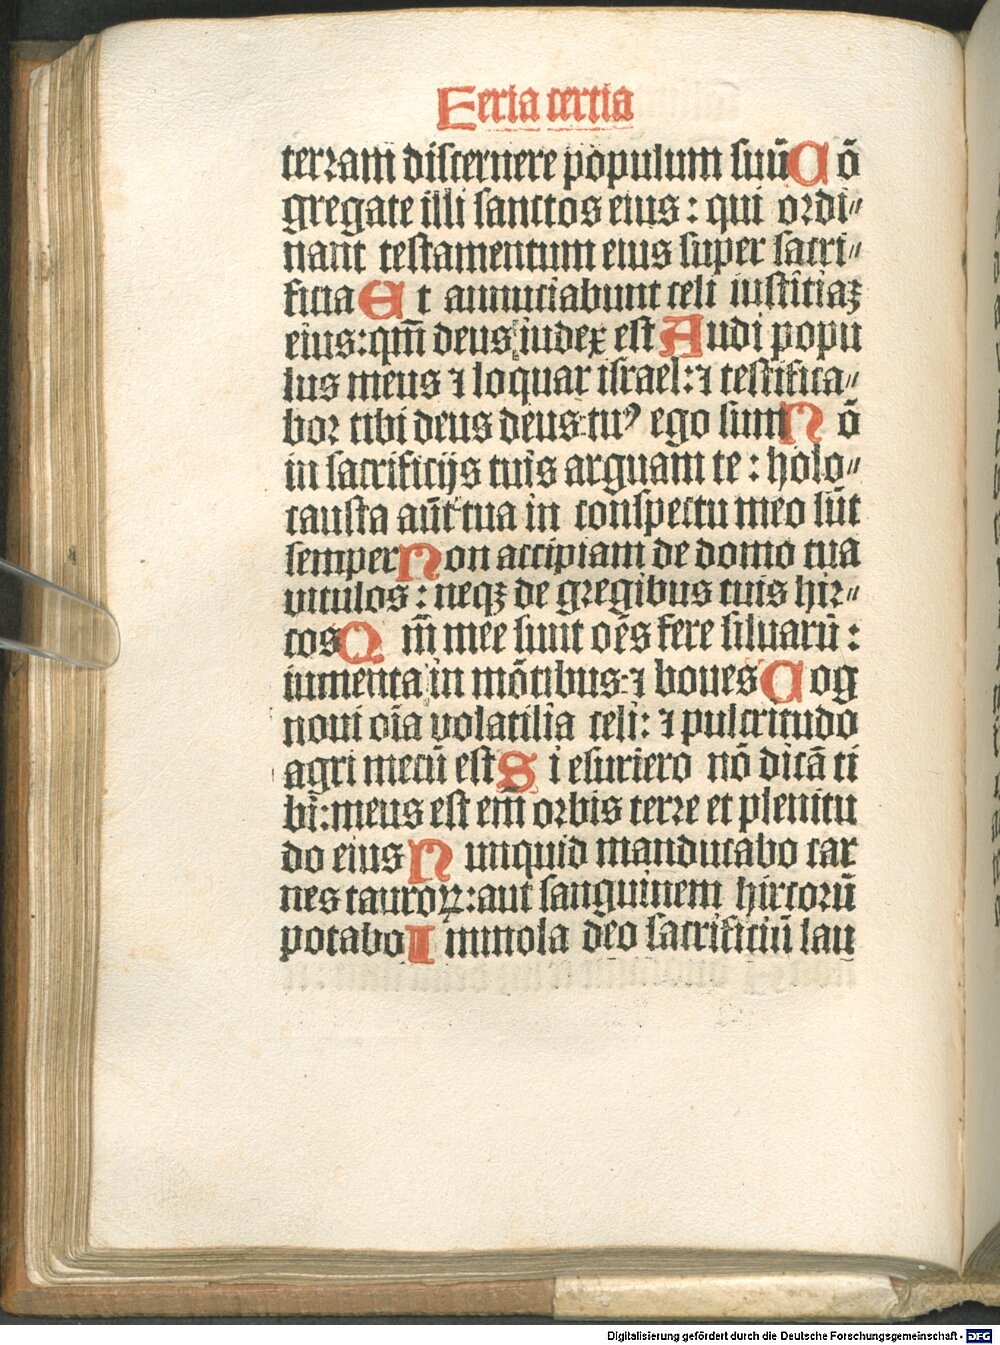 Feria tertia
terram discernere populum suū Cō
gregate illi sanctos eius : qui ordi⸗
nant testamentum eius super sacri⸗
ficia Et annuciabunt celi iusticiaꝫ
eius: qm̄ deus iudex est Audi popu
lus meus ⁊ loquar israel: ⁊ testifica⸗
bor tibi deus deus tuꝰ ego sum Nō
in sacrificijs tuis arguam te : holo⸗
causta aūt tua in conspectu meo sūt
semper Non accipiam de domo tua
vitulos : neqꝫ de gregibus tuis hir⸗
cos Qm̄ mee sunt oēs fere siluarū :
iumenta in mōtibus ⁊ boues Cog
noui oīa volatilia celi: ⁊ pulcritudo
agri mecū est Si esuriero nō dicā ti
bi: meus est em̄ orbis terre et plenitu
do eius Nunquid manducabo car
nes tauroꝝ: aut sanguinem hircorū
potabo Immola deo sacrificiū lau
Digitalisierung gefördert durch die Deutsche Forschungsgemeinschaft - DFG